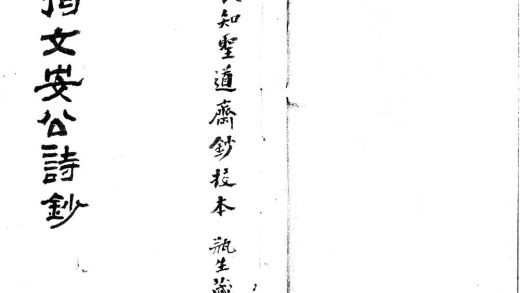 知聖道齋鈔校本 瓶生藏
文安公詩鈔